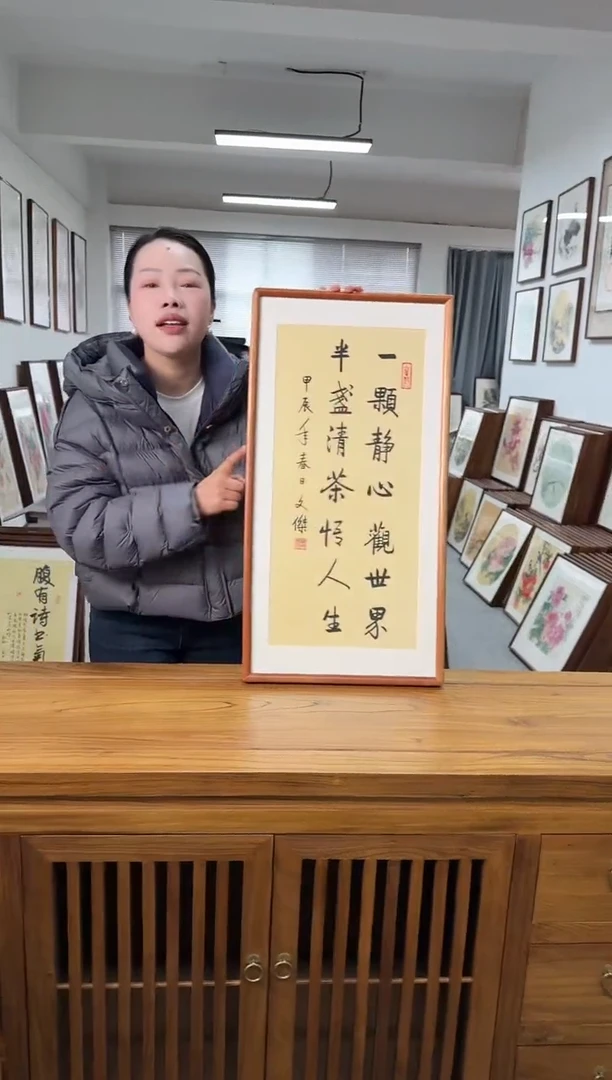 一顆静心觀世界
半盞清茶悟人生
甲辰年春日文傑
腹有诗书氣